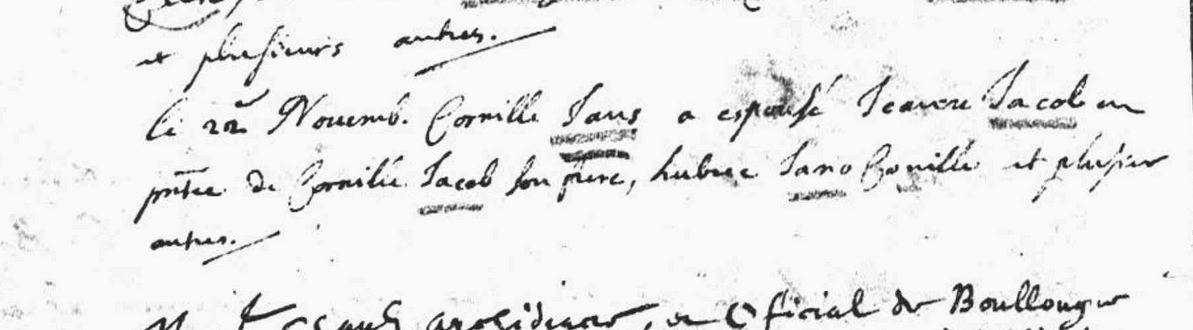 et plusieurs autres.
le 22e Novemb. Cornille Jans a espousé Jeanne Jacob en
pntce de Cornille Jacob son pere, hubert Jans Cornille et plusieur
autres.
Official de Boullougne